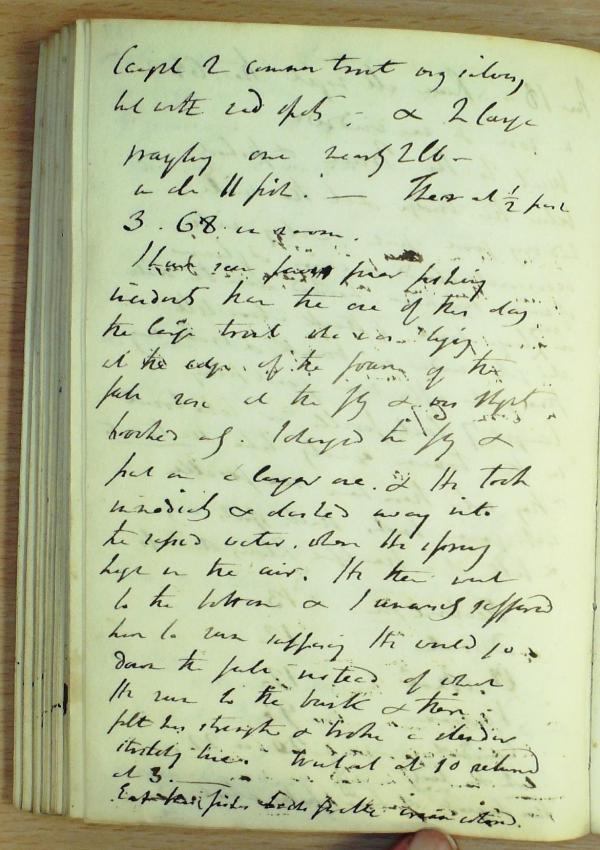 Caught 2 common trout very silvery
but with red spots - & 2 large
grayling one nearly 2lb -
in all 11 fish. — Ther at ½ past
3. 68. in room.
I have seen finer fishing
incidents than the one of this day
the large trout who was lying
at the edge of the foam of the
fall rose at the fly & was slightly
hooked. I changed the fly &
put on a larger one. & He took
immediately & dashed away into
the rapid water. when He sprung
high in the air. He then went
to the bottom & I unwisely suffered
him to run supposing He would go
down the fall instead of which
He ran to the bank & then
felt his strength & broke a slender
line. Went out at 10 returned
at 3.
fish